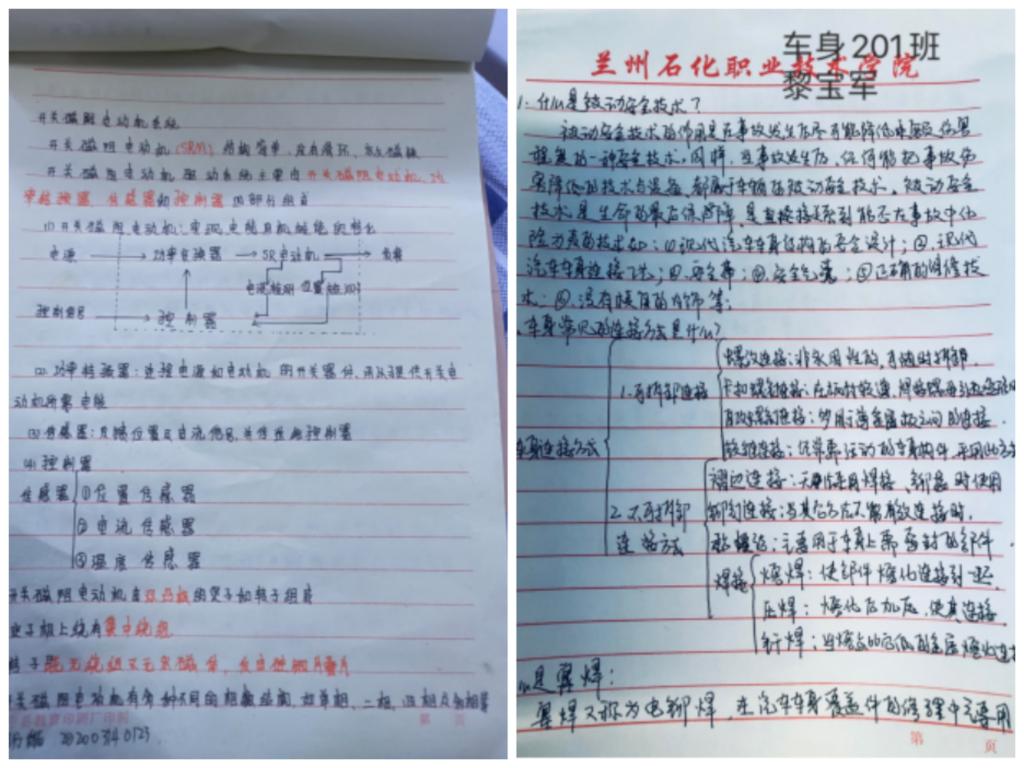 开关磁阻电动机系统
开关磁阻电动机(SRM)结构简单、没有滑环、永久磁铁
开关磁阻电动机驱动系统主要由开关磁阻电动机、功
率转换器、传感器和控制器四部分组成
(1)开关磁阻电动机:实现电能与机械能的转化
电源 功率变换器 SR电动机 负载
电流检测 位置检测
控制信号 控制器
(2)功率转换器:连接电源和电动机的开关器件,用以提供开关电
动机所需电能
(3)传感器:反馈位置及电流信号,并传给控制器
(4)控制器
传感器 ①位置传感器
②电流传感器
③温度传感器
开关磁阻电动机由双凸极的定子和转子组成
定子极上绕有集中绕组
转子既无绕组又无永磁体,
开关磁阻电动机有多种不同的相数结构,如单相、二相、四相及多相等
20200340123
车身201班
兰州石化职业技术学院
黎宝军
1.什么是被动安全技术?
被动安全技术的作用是在事故发生后尽可能降低乘员伤害
程度的一种安全技术。同样,当事故发生后,任何能把事故伤
害降低的技术与设备都属于车辆的被动安全技术。被动安全
技术是生命的最后保障,是直接关系到能否在事故中化
险为夷的技术如:①现代汽车车身结构的安全设计;②现代
汽车车身连接工艺;③安全带;④安全气囊;⑤正确的维修技
术;⑥没有棱角的内饰等;
车身常见的连接方式是什么?
车身连接方式
1.可拆卸连接
螺纹连接:非永用性的,可随时拆卸
卡扣连接:
连接:多用于薄金属板之间的连接.
铰链连接:经常需活动的车身构件,采用此方
2.不可拆卸
连接方式
褶边连接:无法采用焊接、铆接时使用
铆钉连接:当其它方法不能有效连接时.
粘接:主要用于车身上需密封的部件.
焊接
熔焊:使部件熔化连接到一起
压焊:熔化后加压,使其连接
钎焊:当熔点的它低的金属熔化连接
么是翼焊:
翼焊又称为电铆焊,在汽车车身覆盖件的修理中主要用
第 页